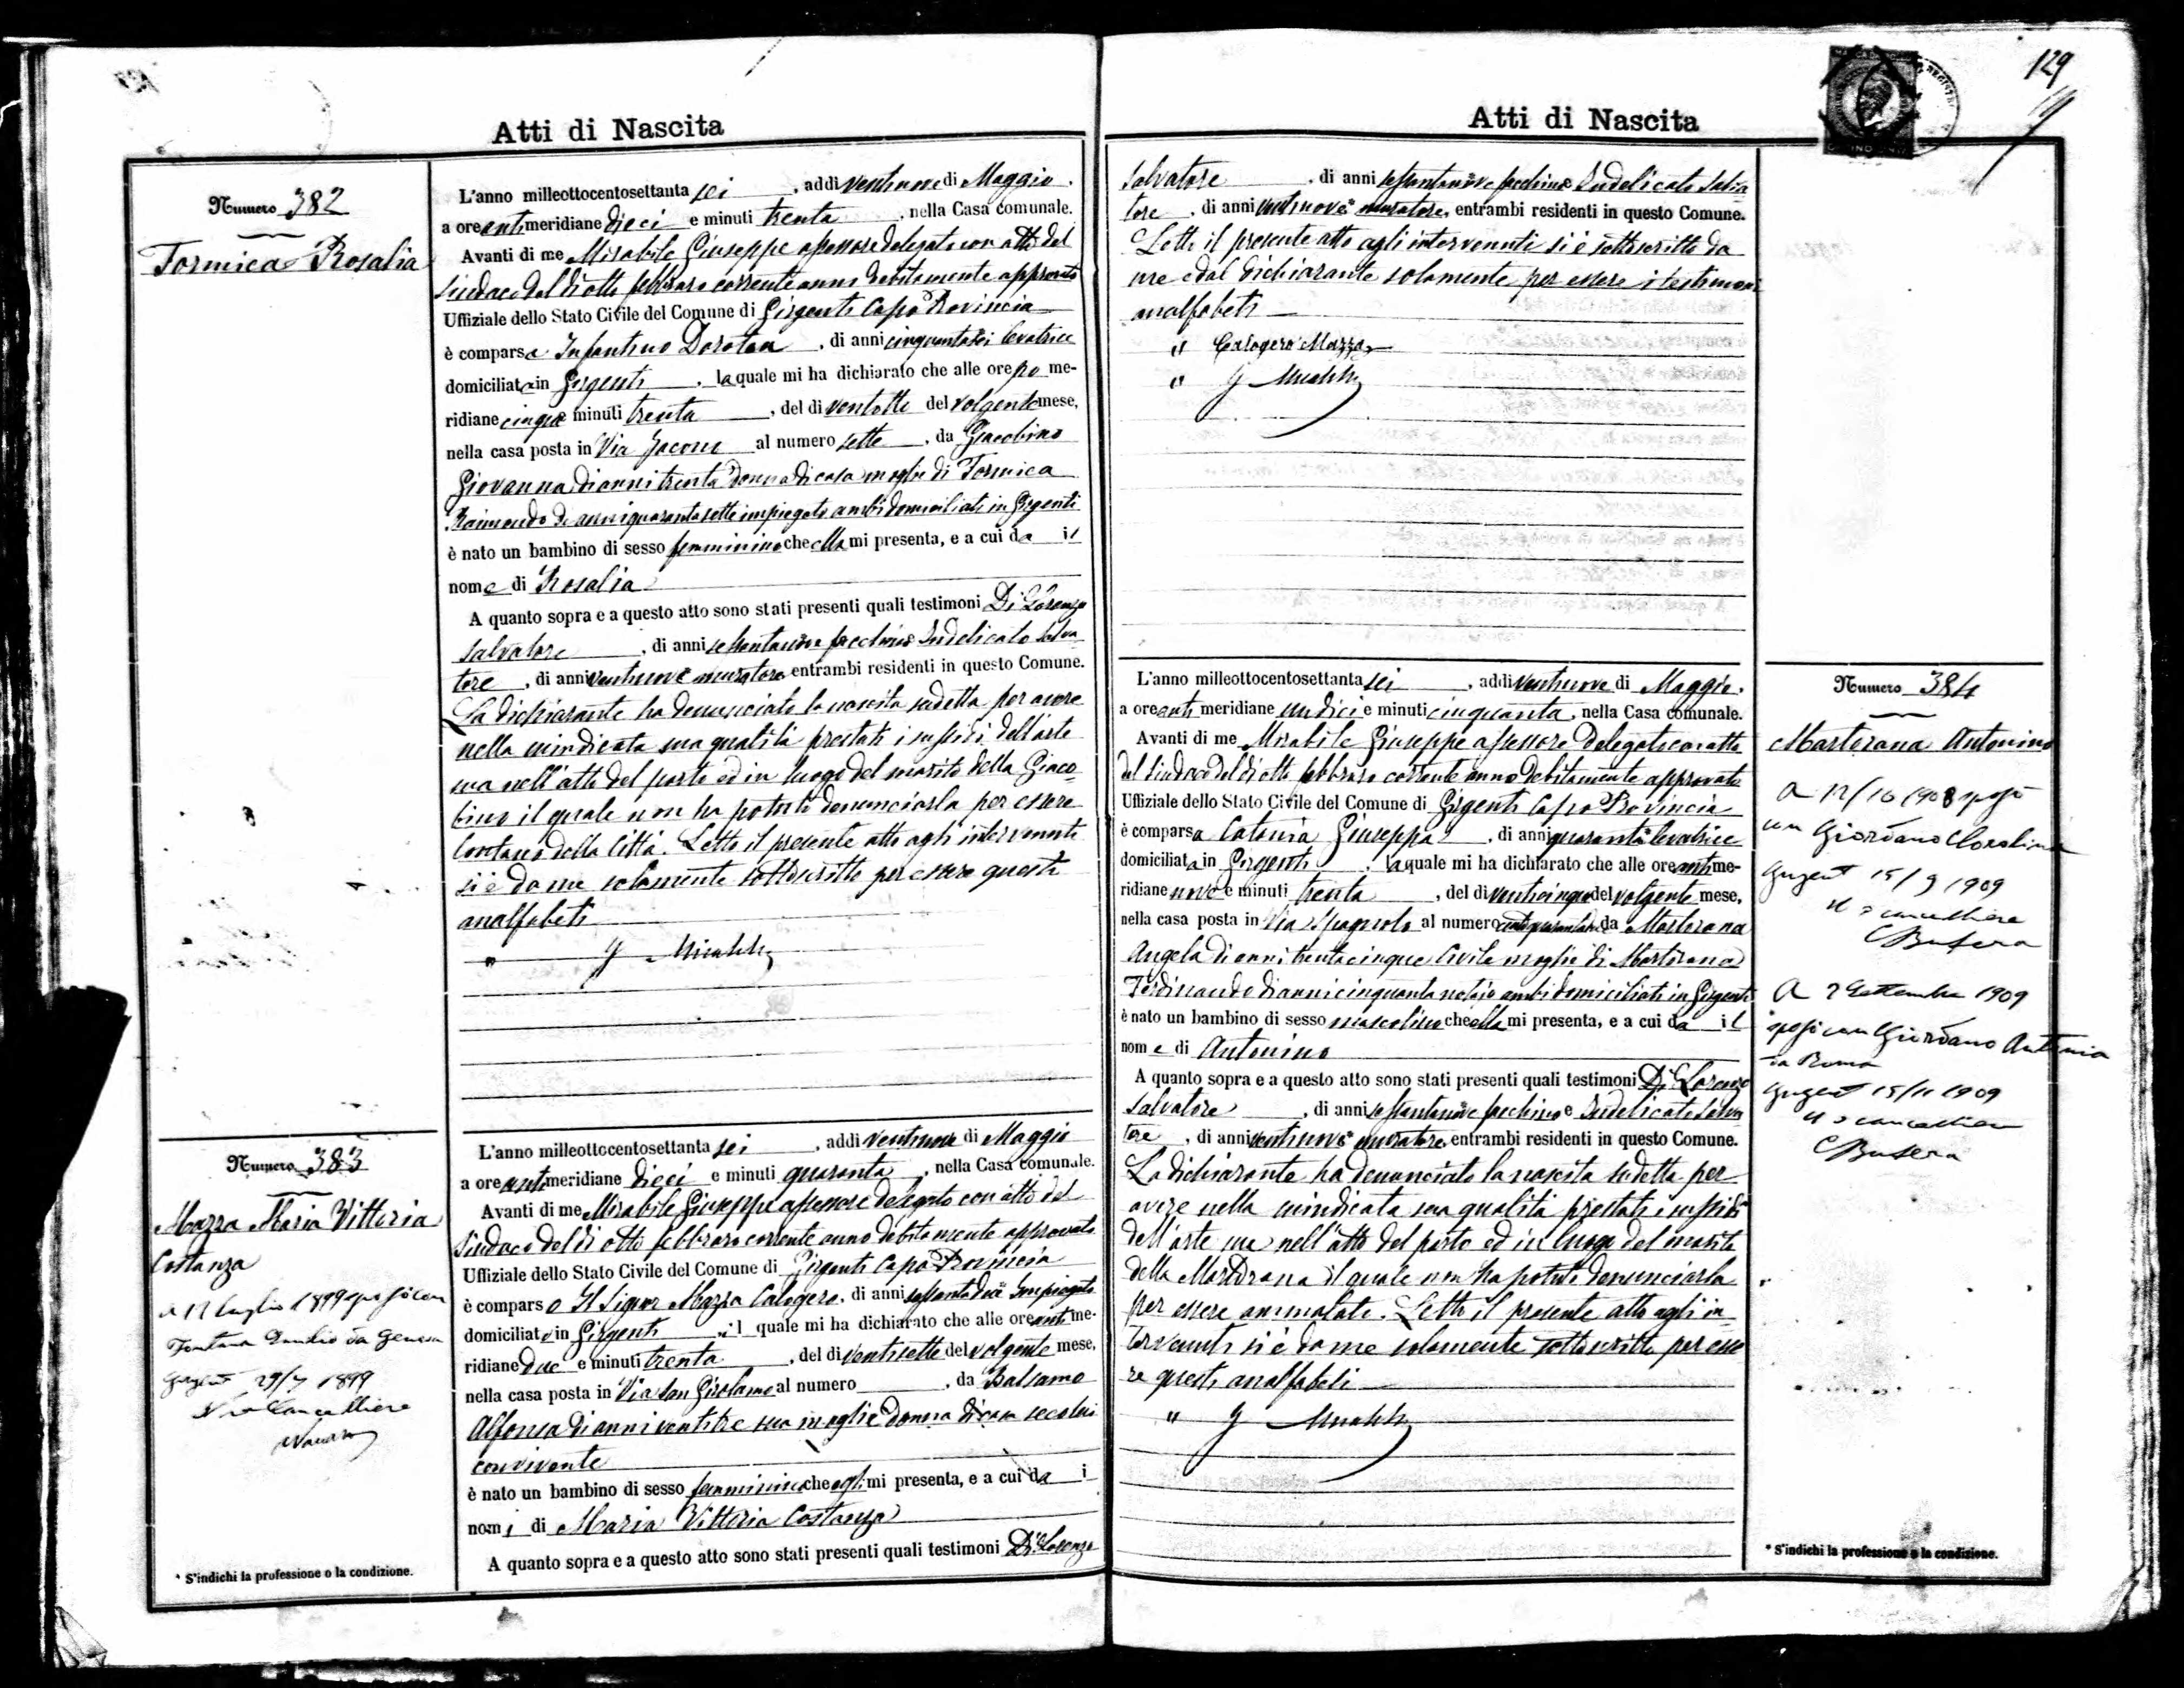 129
Atti di Nascita
Numero 382
Formica Rosalia
L'anno milleottocentosettanta sei, addì ventinove di Maggio,
a ore anti meridiane dieci e minuti trenta, nella Casa comunale.
Avanti di me Mirabile Giuseppe assessore delegato con atto del
Sindaco del dì otto febbraro corrente anno debitamente approvato
Uffiziale dello Stato Civile del Comune di Girgenti Capo Provincia
è comparsa Infantino Dorotea, di anni cinquantasei levatrice
domiciliata in Girgenti, la quale mi ha dichiarato che alle ore po me-
ridiane cinque e minuti trenta, del dì ventotto del volgente mese,
nella casa posta in Via Jacono al numero sette, da Giacobino
Giovanna di anni trenta donna di casa moglie di Formica
Raimondo di anni quarantasette impiegato ambi domiciliati in Girgenti
è nato un bambino di sesso femminino che ella mi presenta, e a cui da il
nome di Rosalia
A quanto sopra e a questo atto sono stati presenti quali testimoni Di Lorenzo
Salvatore, di anni sessantanove facchino e Indelicato Salva
tore, di anni ventinove muratore, entrambi residenti in questo Comune.
La dichiarante ha denunciato la nascita sudetta per avere
nella mindicata sua qualità prestati i sussidi dell'arte
sua nell'atto del parto ed in luogo del marito della Giaco
bino il quale non ha potuto denunciarla per essere
lontano della Città. Letto il presente atto agli intervenuti
si è da me solamente sottoscritto per essere questi
analfabeti
" G Mirabile
Numero 383
Mazza Maria Vittoria
Costanza
a 12 luglio 1899 sposò con
Fontana da Genova
Girgenti 29/7 1899
Il Cancelliere
L'anno milleottocentosettanta sei, addì ventinove di Maggio
a ore anti meridiane dieci e minuti quaranta, nella Casa comunale.
Avanti di me Mirabile Giuseppe assessore delegato con atto del
Sindaco del dì otto febbraro corrente anno debitamente approvato
Uffiziale dello Stato Civile del Comune di Girgenti Capo Provincia
è comparso Il Signor Mazza Calogero, di anni sessantadue Impiegato
domiciliato in Girgenti, il quale mi ha dichiarato che alle ore anti me-
ridiane due e minuti trenta, del dì ventisette del volgente mese,
nella casa posta in Via San Girolamo al numero, da Balsamo
Alfonsa di anni ventitre sua moglie donna di casa seco lui
convivente
è nato un bambino di sesso femminino che egli mi presenta, e a cui da i
nomi di Maria Vittoria Costanza
A quanto sopra e a questo atto sono stati presenti quali testimoni Di Lorenzo
* S'indichi la professione o la condizione.
Atti di Nascita
Salvatore, di anni sessantanove facchino e Indelicato Salva
tore, di anni ventinove muratore, entrambi residenti in questo Comune.
Letto il presente atto agli intervenuti si è sottoscritto da
me e dal dichiarante solamente per essere i testimoni
analfabeti
" Calogero Mazza
" G Mirabile
L'anno milleottocentosettanta sei, addì ventinove di Maggio,
a ore anti meridiane undici e minuti cinquanta, nella Casa comunale.
Avanti di me Mirabile Giuseppe assessore delegato con atto
del Sindaco del dì otto febbraro corrente anno debitamente approvato
Uffiziale dello Stato Civile del Comune di Girgenti Capo Provincia
è comparsa Catania Giuseppa, di anni quaranta levatrice
domiciliata in Girgenti, la quale mi ha dichiarato che alle ore anti me-
ridiane nove e minuti trenta, del dì venticinque del volgente mese,
nella casa posta in Via Spagnolo al numero da Martorana
Angela di anni trentacinque civile moglie di Martorana
Ferdinando di anni cinquanta notajo ambi domiciliati in Girgenti
è nato un bambino di sesso mascolino che ella mi presenta, e a cui da il
nome di Antonino
A quanto sopra e a questo atto sono stati presenti quali testimoni Di Lorenzo
Salvatore, di anni sessantanove facchino e Indelicato Salva
tore, di anni ventinove muratore, entrambi residenti in questo Comune.
La dichiarante ha denunciato la nascita sudetta per
avere nella mindicata sua qualità prestati i sussidi
dell'arte sua nell'atto del parto ed in luogo del marito
della Martorana il quale non ha potuto denunciarla
per essere ammalato. Letto il presente atto agli in
tervenuti si è da me solamente sottoscritto per esse
re questi analfabeti
" G Mirabile
Numero 384
Martorana Antonino
A 12/10 1908 sposò
con Giordano
Girgenti 15/9 1909
Il cancelliere
Butera
A 2 Settembre 1909
sposò con Giordano Antonia
da Roma
Girgenti 15/11 1909
Il cancelliere
Butera
* S'indichi la professione o la condizione.